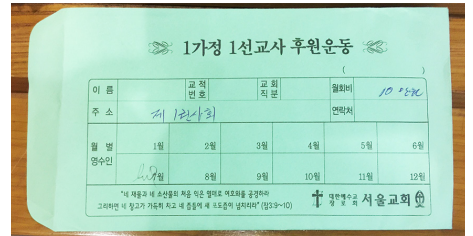 1가정 1선교사 후원운동
( )
이 름 교 적 번 호 교 회 직 분 월회비 10만원
주 소 제1권사회 연락처
월 별 영수인 1월 2월 3월 4월 5월 6월
7월 8월 9월 10월 11월 12월
"네 재물과 네 소산물의 처음 익은 열매로 여호와를 공경하라
그리하면 네 창고가 가득히 차고 네 즙틀에 새 포도즙이 넘치리라" (잠3:9~10)
대한예수교 장로회 서울교회